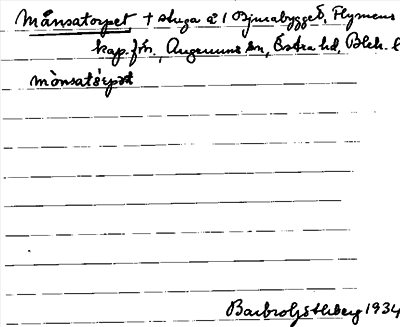 Månsatorpet + stuga å 1 Bjurabygget, Flymens
kap.förs., Augerums sn, Östra hd, Blek. l
mònsatórpət
Barbro Söderberg 1934